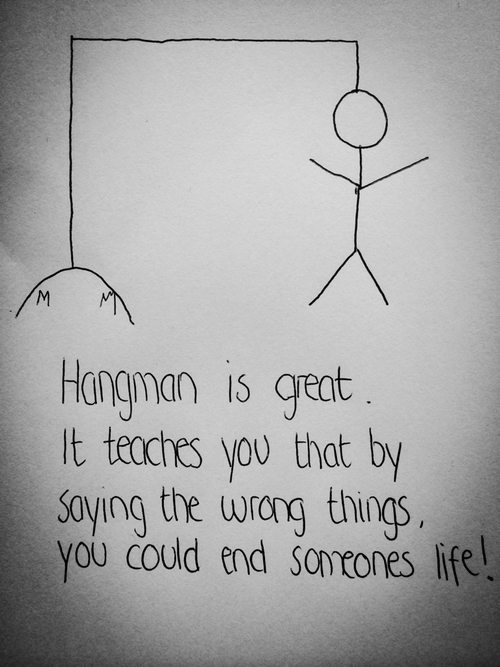 Hangman is great.
It teaches you that by
saying the wrong things,
you could end someones life!